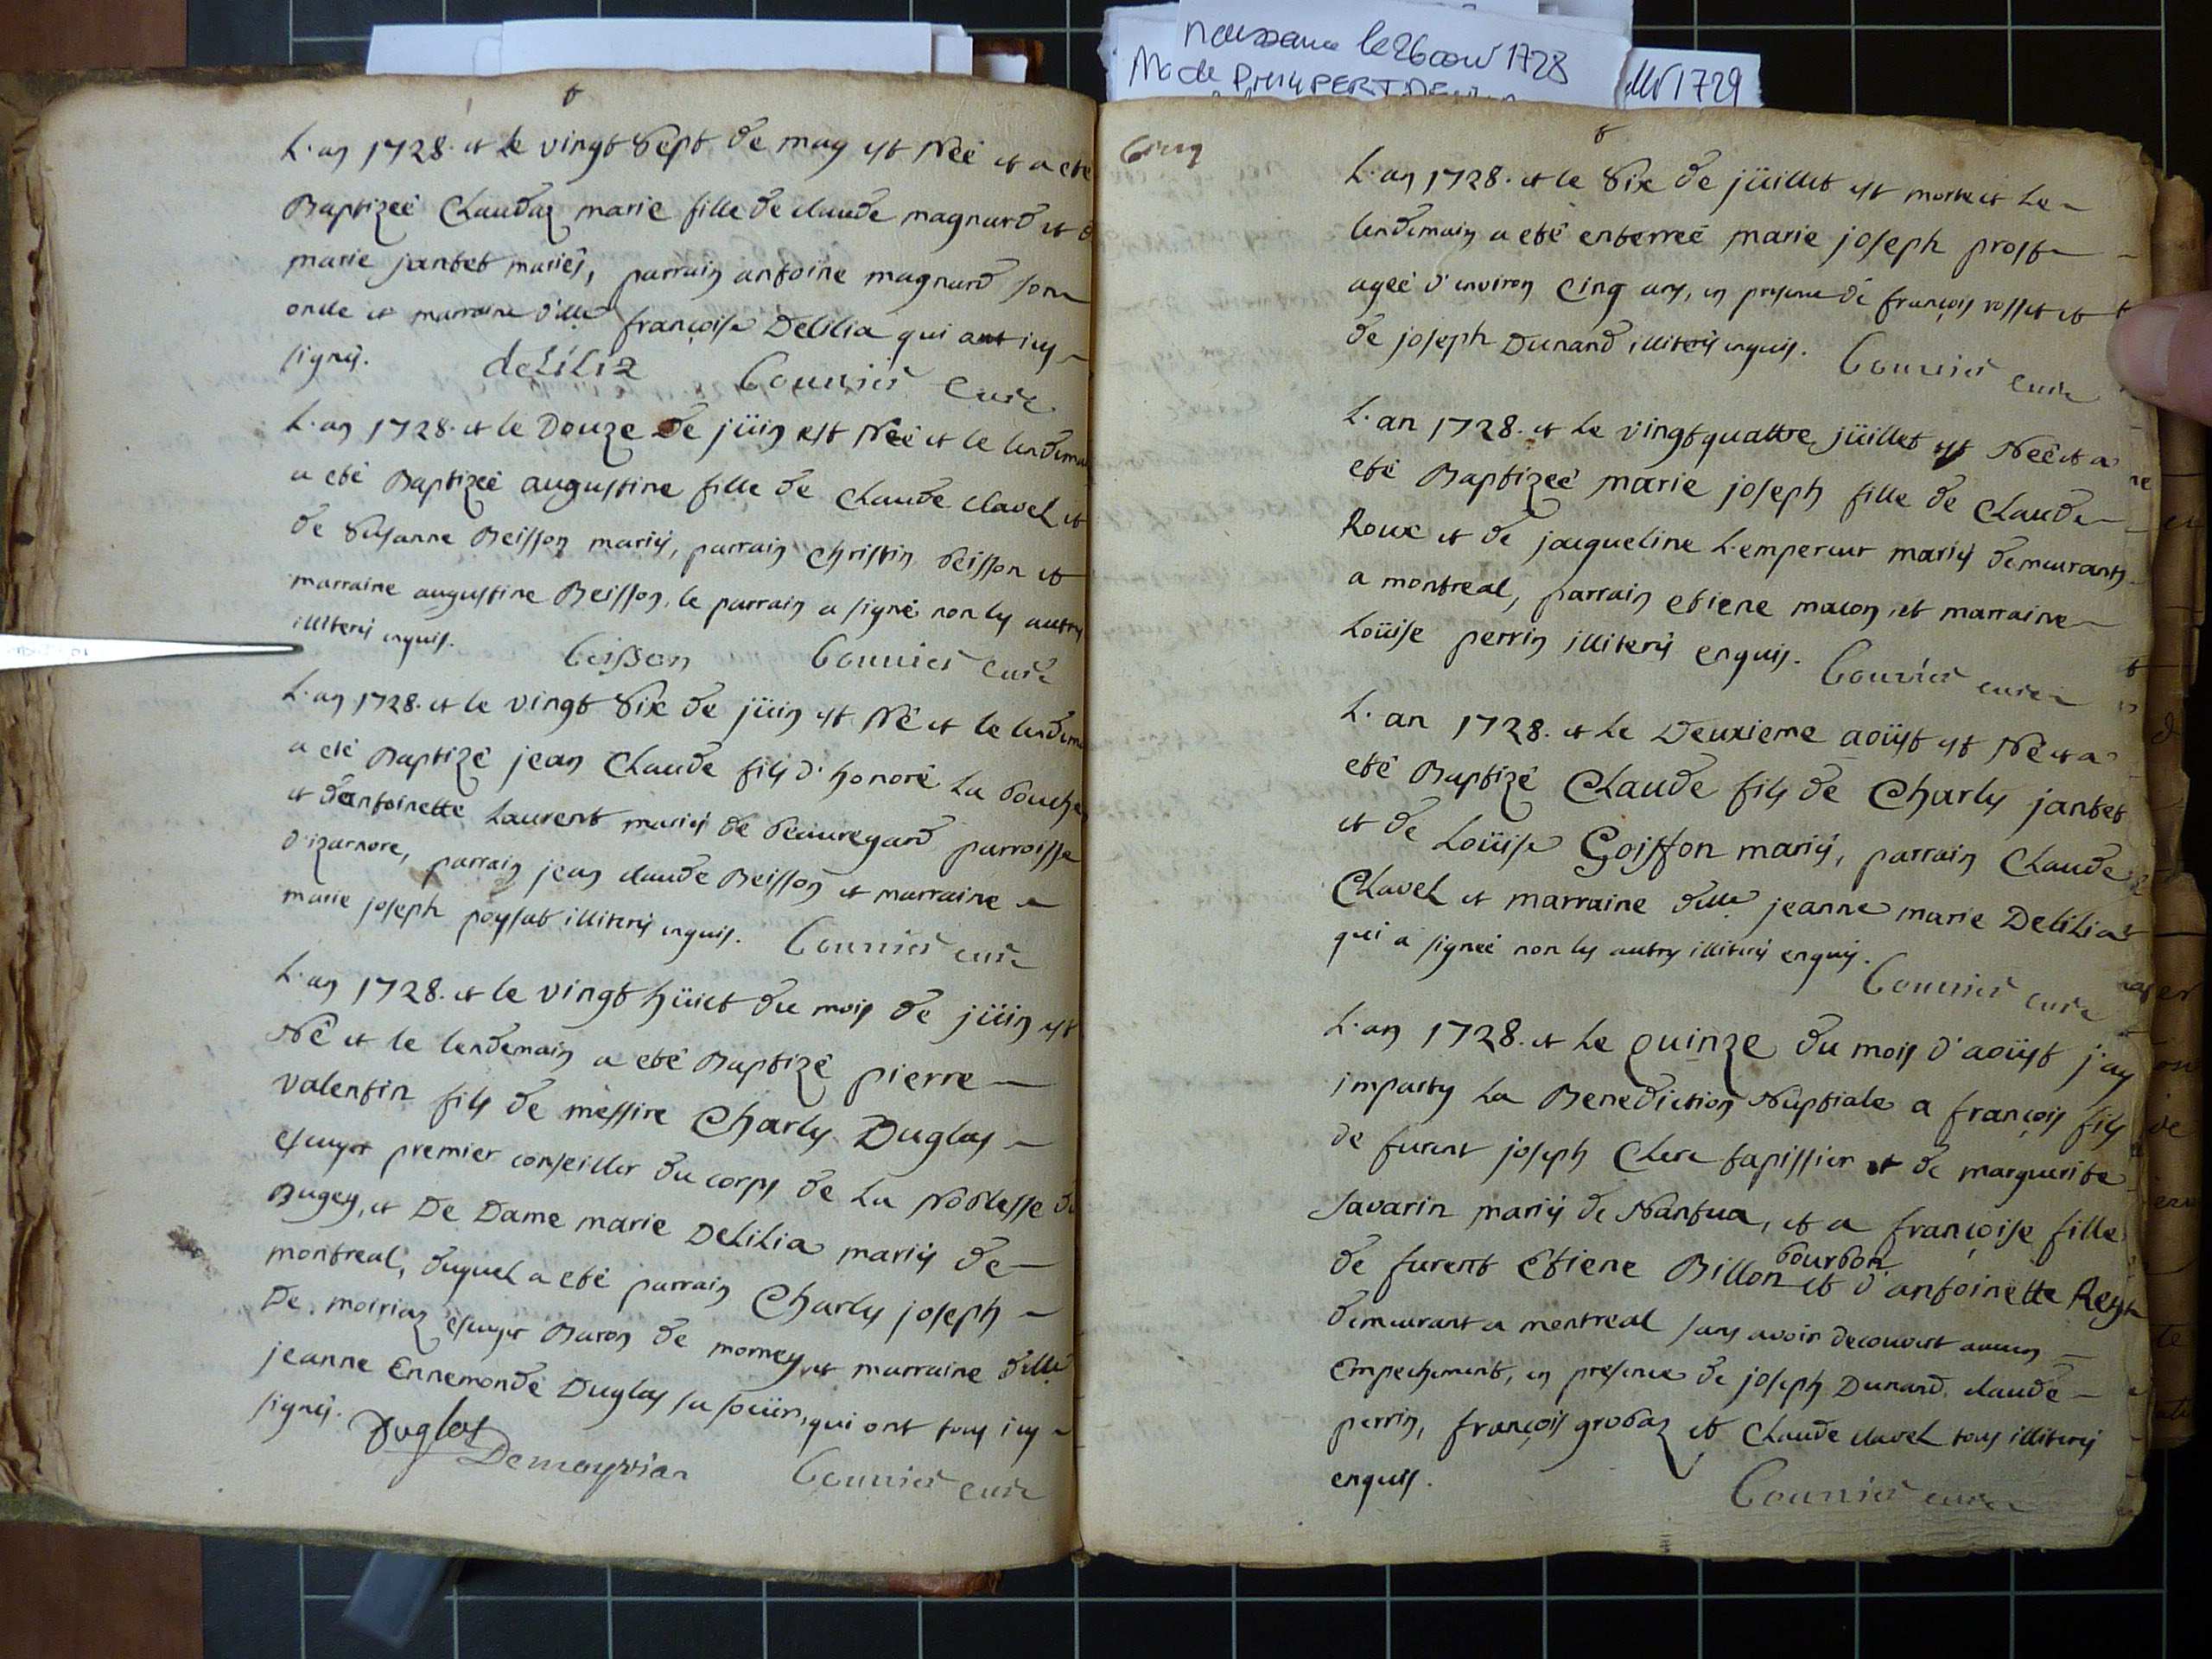 naissance le 26 aout 1728
1729
L'an 1728. et le vingt sept de may est Née et a eté
Baptizeé Claudaz marie fille de claude magnard et d
marie jantet mariés, parrain antoine magnard son
oncle et marraine d'lle françoise Delilia qui ont icy
signés.
deLiLia Couvier Curé
L'an 1728. et le Douze de jüin est Neé et le lendema
a eté Baptizeé augustine fille de Claude Clavel et
de Susanne Beisson mariés, parrain Christin Beisson et
marraine augustine Beisson, le parrain a signé non les autres
illiterés enquis.
beisson Couvier Curé
L'an 1728. et le vingt Six de jüin est Né et le lendema
a eté Baptizé jean Claude fils d'honoré La Bouche
et d'antoinette Laurent mariés de Beauregard parroisse
d'izarnore, parrain jean claude Beisson et marraine
marie joseph poysat illiterés enquis. Couvier curé
L'an 1728. et le vingt hüict du mois de jüin est
Né et le lendemain a eté Baptizé pierre
valentin fils de messire Charles Duglas
escuyer premier conseiller du corps de La Noblesse du
Bugey, et De Dame marie DeLiLia mariés de
montreal, duquel a eté parrain Charles joseph
De moiriaz escuyer Baron de morney, et marraine d'lle
jeanne Ennemonde Duglas sa soeür, qui ont tous icy
signés.
Duglas
Demoyria Couvier curé
Cinq
L'an 1728. et le Six de jüillet est morte et Le
lendemain a eté enterreé marie joseph prost
ageé d'environ Cinq ans, en presence de françois rosset et
de joseph Dunand illiterés enquis. Couvier curé
L'an 1728. et Le vingtquattre jüillet est Neé et a
eté Baptizeé marie joseph fille de Claude
Roux et de jacqueline L'empereur mariés demeurants
a montreal, parrain etiene macon, et marraine
Loüise perrin illiterés enquis. Couvier curé
L'an 1728. et Le Deuxieme aoüst est Né et a
eté Baptizé Claude fils de Charles jantet
et de Loüise Goiffon mariés, parrain Claude
Clavel et marraine d'lle jeanne marie DeliLia
qui a signeé non les autres illiterés enquis.
Couvier curé
L'an 1728. et Le quinze du mois d'aoüst j'ay
imparty La Benediction Nuptiale a françois fils
de furent joseph Clerc tapissier et de marguerite
Savarin mariés de Nantua, et a françoise fille
de furent Etiene Billon bourbon et d'antoinette Rey
demeurant a montreal sans avoir decouvert aucun
Empechement, en presence de joseph Dunand, claude
perrin, françois grobaz et Claude clavel tous illiterés
enquis.
Couvier curé